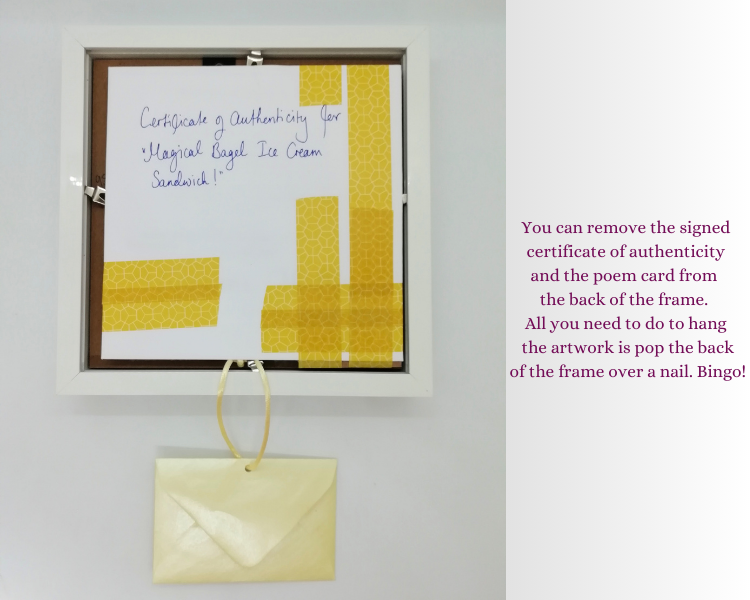 Certificate of Authenticity for
"Magical Bagel Ice Cream
Sandwich!"
You can remove the signed
certificate of authenticity
and the poem card from
the back of the frame.
All you need to do to hang
the artwork is pop the back
of the frame over a nail. Bingo!